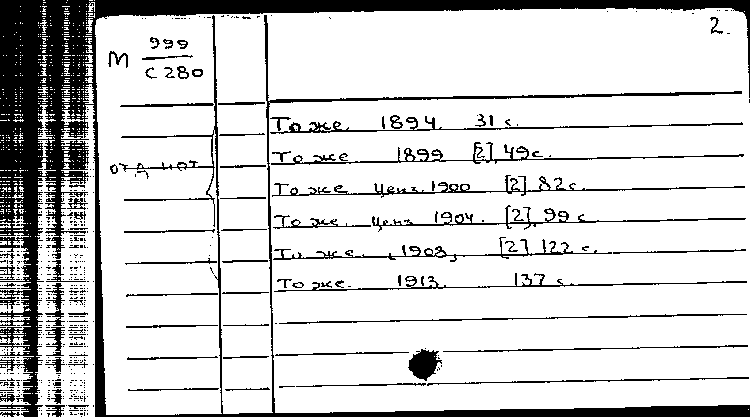 2.
М 999
С 280
То же. 1894. 31 с.
отд нот
То же 1899 [2], 49 с.
То же ценз. 1900 [2] 82 с.
То же. Ценз 1904. [2], 99 с
То же. [1908] [2] 122 с.
То же. 1913. 137 с.